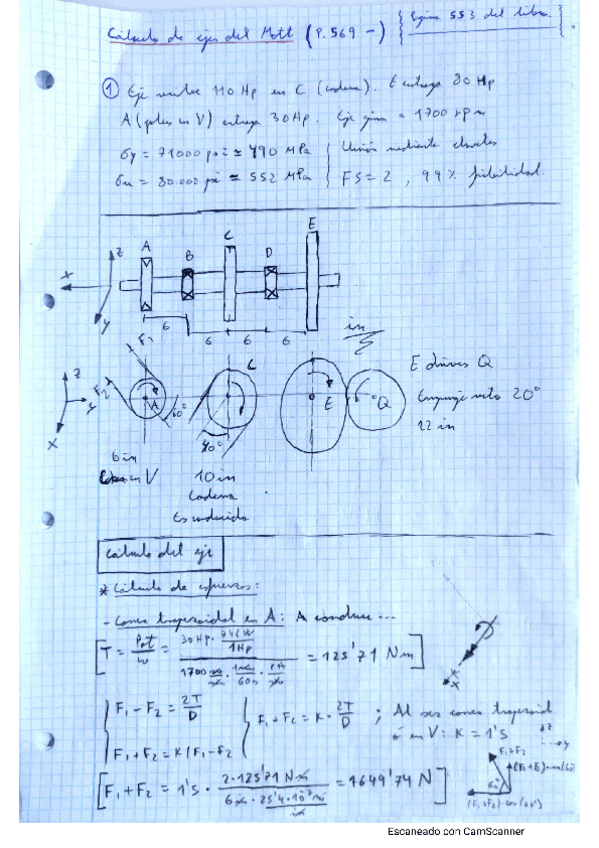 Cálculo de ejes del Mott (P.569 -) { Página 553 del libro. }
① Eje recibe 110 Hp en C (cadena). E entrega 80 Hp
A (polea en V) entrega 30 Hp. Eje gira a 1700 rpm
σy = 71000 psi ≃ 490 MPa | Unión mediante chavetas
σu = 80.000 psi ≃ 552 MPa | FS = 2, 99% fiabilidad.
A B C D E
x y z
6 6 6 6 in
F1 F2 A 60° C 40° E Q
z y x
E drives Q
Engranaje recto 20°
12 in
6 in
en V
10 in
Cadena
Es conducida
Cálculo del eje
* Cálculo de esfuerzos:
- Correa trapezoidal en A: A conduce...
[T = Pot/ω = (30 Hp · 746W/1Hp) / (1700 · 1/60s ·) = 125'71 Nm]
{ F1 - F2 = 2T/D { F1 + F2 = K · 2T/D ; Al ser correa trapezoidal
{ F1 + F2 = K(F1 - F2 ó en V: K = 1'5
[F1 + F2 = 1'5 · (2·125'71 Nm) / (6 in · 25'4·10⁻³ m/in) = 1649'74 N]
F1+F2
(F1+F2)·sen(60)
60°
(F1+F2)·cos(60°)
Escaneado con CamScanner